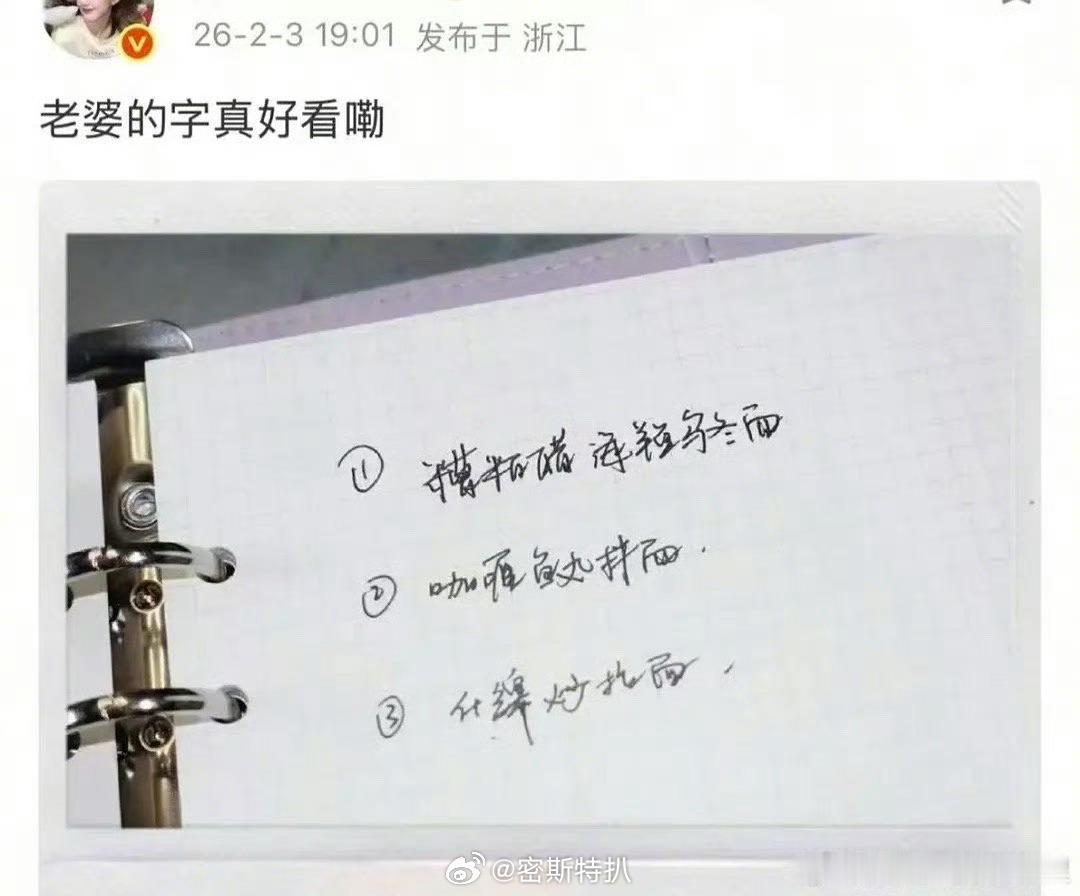 26-2-3 19:01 发布于 浙江
老婆的字真好看嘞
① 糟粕醋海鲜乌冬面
② 咖喱鱼丸拌面.
③ 什锦炒拉面.
@密斯特扒